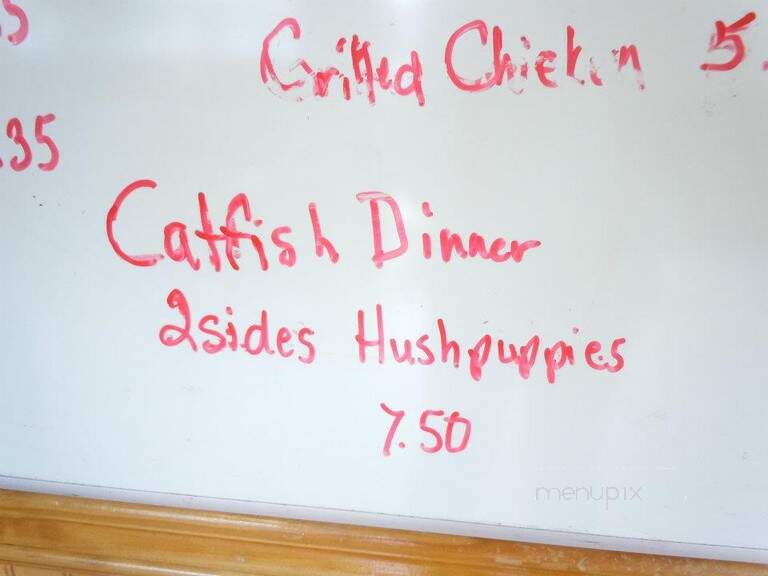 5
Grilled Chicken 5.
.35
Catfish Dinner
2sides Hushpuppies
7.50
menupix